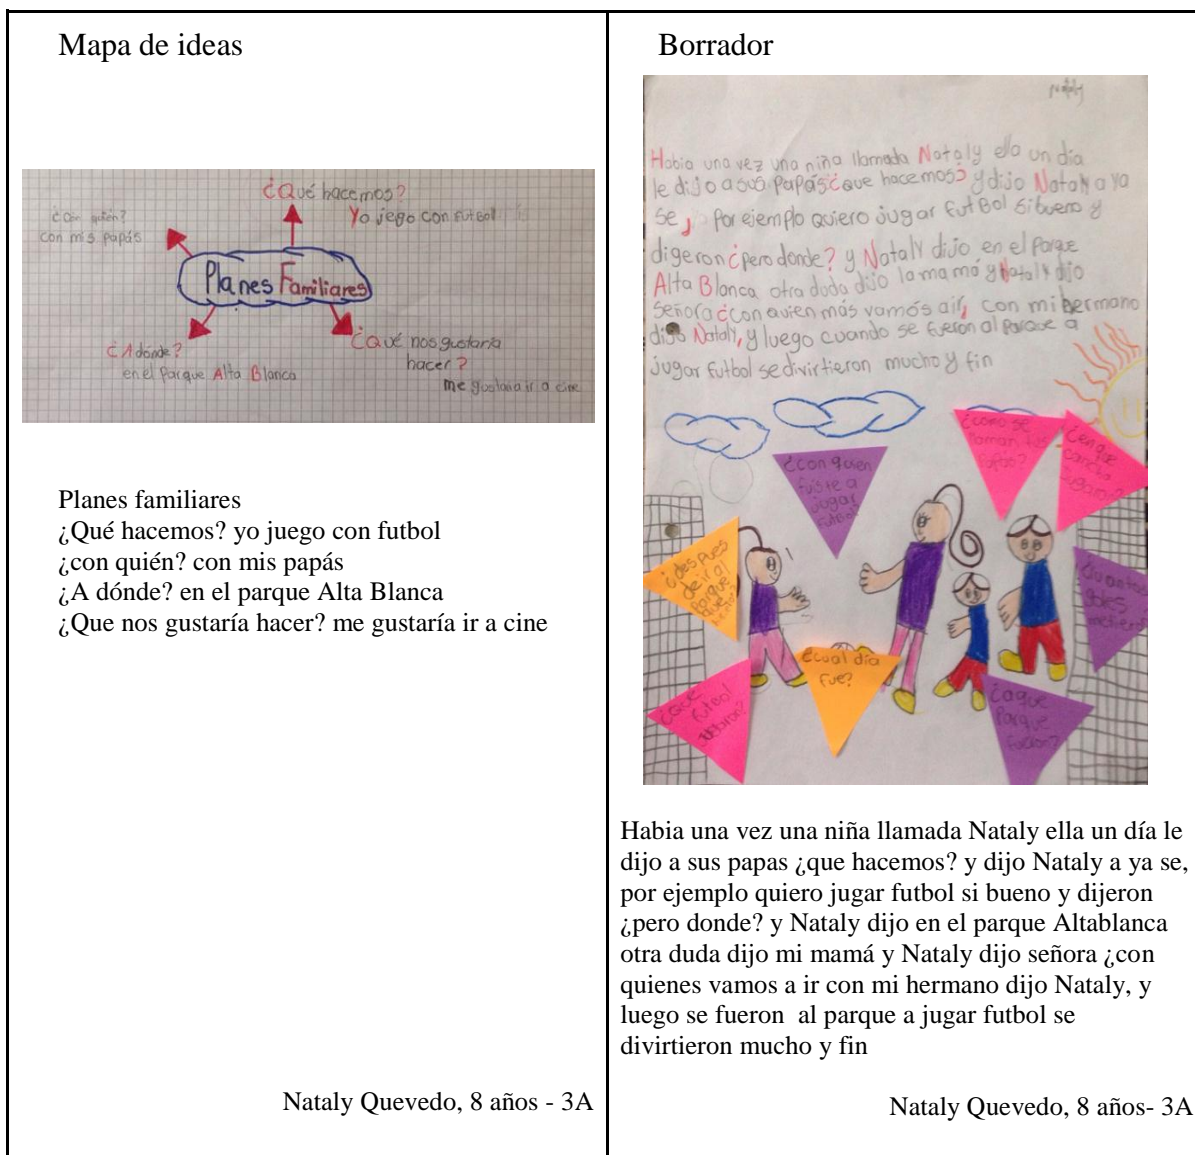 Mapa de ideas
¿Qué hacemos?
Yo jego con futbol
¿con quién?
con mis papás
Planes Familiares
¿A dónde?
en el Parque Alta Blanca
¿Qué nos gustaria
hacer?
me gustaria ir a cine
Planes familiares
¿Qué hacemos? yo juego con futbol
¿con quién? con mis papás
¿A dónde? en el parque Alta Blanca
¿Que nos gustaría hacer? me gustaría ir a cine
Nataly Quevedo, 8 años - 3A
Borrador
Nataly
Habia una vez una niña llamada Nataly ella un día
le dijo a sus Papás ¿que hacemos? y dijo Nataly a ya
se, Por ejemplo quiero jugar futBol si bueno y
digeron ¿pero donde? y Nataly dijo en el Parque
Alta Blanca otra duda dijo la mamá y Nataly dijo
señora ¿con quien más vamos a ir, con mi hermano
dijo Nataly, y luego cuando se fueron al Parque a
jugar futbol se divirtieron mucho y fin
¿como se
llaman tus
papas?
¿en que
cancha
jugaron?
¿con quien
fuiste a
jugar
futbol?
¿despues
de ir al
parque
¿cuantos
goles
metieron
¿cual día
fue?
¿que
futbol
jugaron?
¿aque
Parque
fueron?
Habia una vez una niña llamada Nataly ella un día le
dijo a sus papas ¿que hacemos? y dijo Nataly a ya se,
por ejemplo quiero jugar futbol si bueno y dijeron
¿pero donde? y Nataly dijo en el parque Altablanca
otra duda dijo mi mamá y Nataly dijo señora ¿con
quienes vamos a ir con mi hermano dijo Nataly, y
luego se fueron al parque a jugar futbol se
divirtieron mucho y fin
Nataly Quevedo, 8 años- 3A